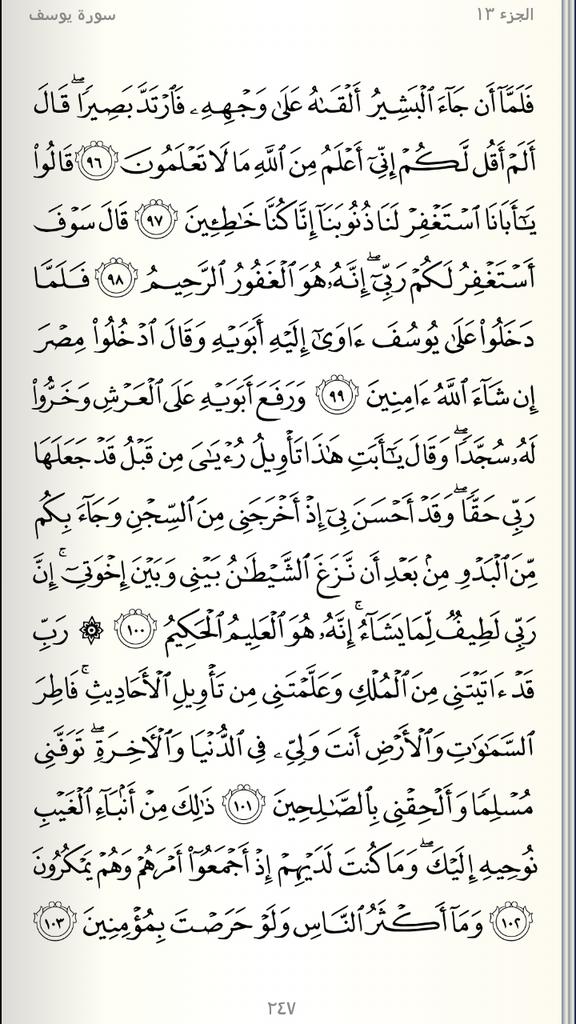 سورة يوسف الجزء ١٣
فَلَمَّآ أَن جَآءَ ٱلْبَشِيرُ أَلْقَىٰهُ عَلَىٰ وَجْهِهِۦ فَٱرْتَدَّ بَصِيرًا ۖ قَالَ
أَلَمْ أَقُل لَّكُمْ إِنِّىٓ أَعْلَمُ مِنَ ٱللَّهِ مَا لَا تَعْلَمُونَ ٩٦ قَالُوا۟
يَـٰٓأَبَانَا ٱسْتَغْفِرْ لَنَا ذُنُوبَنَآ إِنَّا كُنَّا خَـٰطِـِٔينَ ٩٧ قَالَ سَوْفَ
أَسْتَغْفِرُ لَكُمْ رَبِّىٓ ۖ إِنَّهُۥ هُوَ ٱلْغَفُورُ ٱلرَّحِيمُ ٩٨ فَلَمَّا
دَخَلُوا۟ عَلَىٰ يُوسُفَ ءَاوَىٰٓ إِلَيْهِ أَبَوَيْهِ وَقَالَ ٱدْخُلُوا۟ مِصْرَ
إِن شَآءَ ٱللَّهُ ءَامِنِينَ ٩٩ وَرَفَعَ أَبَوَيْهِ عَلَى ٱلْعَرْشِ وَخَرُّوا۟
لَهُۥ سُجَّدًا ۖ وَقَالَ يَـٰٓأَبَتِ هَـٰذَا تَأْوِيلُ رُءْيَـٰىَ مِن قَبْلُ قَدْ جَعَلَهَا
رَبِّى حَقًّا ۖ وَقَدْ أَحْسَنَ بِىٓ إِذْ أَخْرَجَنِى مِنَ ٱلسِّجْنِ وَجَآءَ بِكُم
مِّنَ ٱلْبَدْوِ مِنۢ بَعْدِ أَن نَّزَغَ ٱلشَّيْطَـٰنُ بَيْنِى وَبَيْنَ إِخْوَتِىٓ ۚ إِنَّ
رَبِّى لَطِيفٌ لِّمَا يَشَآءُ ۚ إِنَّهُۥ هُوَ ٱلْعَلِيمُ ٱلْحَكِيمُ ١٠٠ ۞ رَبِّ
قَدْ ءَاتَيْتَنِى مِنَ ٱلْمُلْكِ وَعَلَّمْتَنِى مِن تَأْوِيلِ ٱلْأَحَادِيثِ ۚ فَاطِرَ
ٱلسَّمَـٰوَٰتِ وَٱلْأَرْضِ أَنتَ وَلِىِّۦ فِى ٱلدُّنْيَا وَٱلْـَٔاخِرَةِ ۖ تَوَفَّنِى
مُسْلِمًا وَأَلْحِقْنِى بِٱلصَّـٰلِحِينَ ١٠١ ذَٰلِكَ مِنْ أَنۢبَآءِ ٱلْغَيْبِ
نُوحِيهِ إِلَيْكَ ۖ وَمَا كُنتَ لَدَيْهِمْ إِذْ أَجْمَعُوٓا۟ أَمْرَهُمْ وَهُمْ يَمْكُرُونَ
١٠٢ وَمَآ أَكْثَرُ ٱلنَّاسِ وَلَوْ حَرَصْتَ بِمُؤْمِنِينَ ١٠٣
٢٤٧